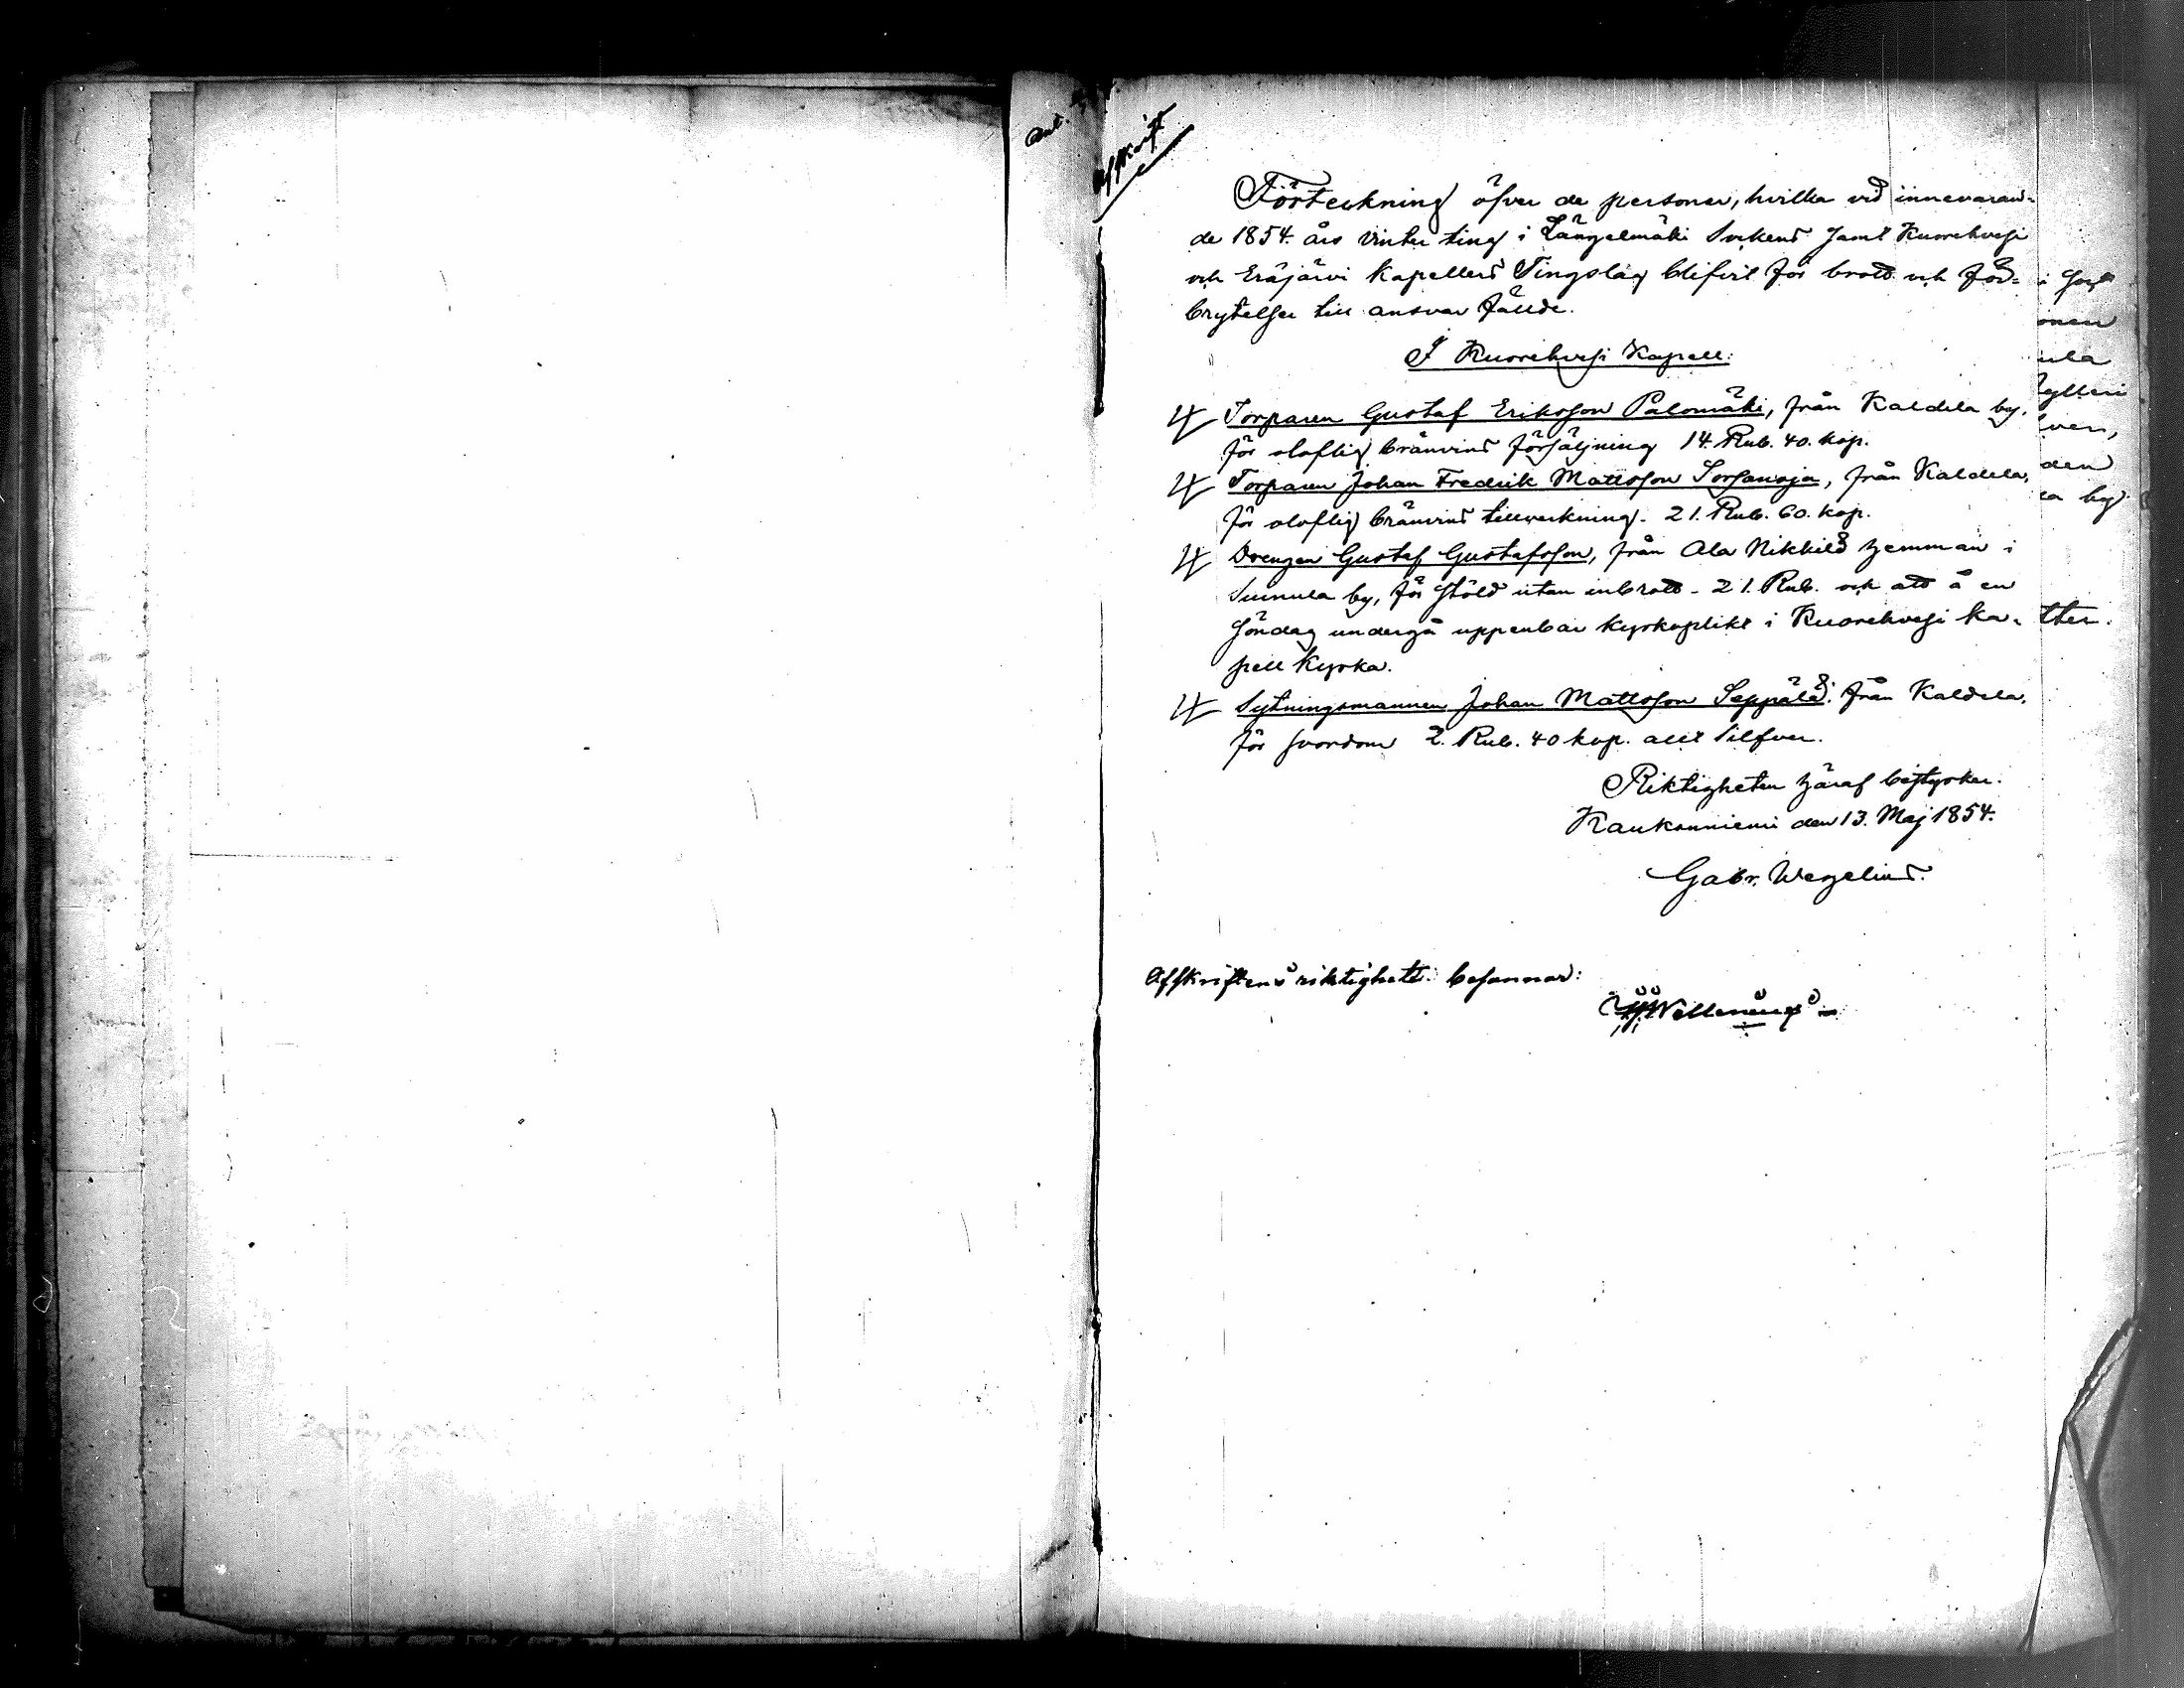 Afskrift
Förteckning öfver de personer, hvilka vid innevaran-
de 1854. års Vinter ting i Längelmäki Sockens samt Kuorehvesi
och Eräjärvi Kapellers Tingslag blifvit för brott och för-
brytelser till ansvar fällde.
I Kuorehvesi Kapell:
Torparen Gustaf Eriksson Palomäki, från Kaldila by.
för oloflig bränvins försäljning 14. Rub. 40. kop.
Torparen Johan Fredrik Mattsson Sorsanoja, från Kaldila,
för oloflig bränvins tillverkning. 21. Rub. 60. kop.
Drengen Gustaf Gustafsson, från Ala Nikkilä hemman i
Suinula by, för stöld utan inbrott - 21. Rub. och att å en
söndag undergå uppenbar kyrkoplikt i Kuorehvesi ka-
pell kyrka.
Sytningsmannen Johan Mattsson Seppälä. från Kaldila.
för svordom 2. Rub. 40 kop. allt Silfver.
Riktigheten häraf bestyrker.
Kaukonniemi den 13. Maj 1854.
Gabr. Wegelius.
Afskriftens riktighet besannar:
i
onen
ula
ylleri
lven,
den
la by
tter.